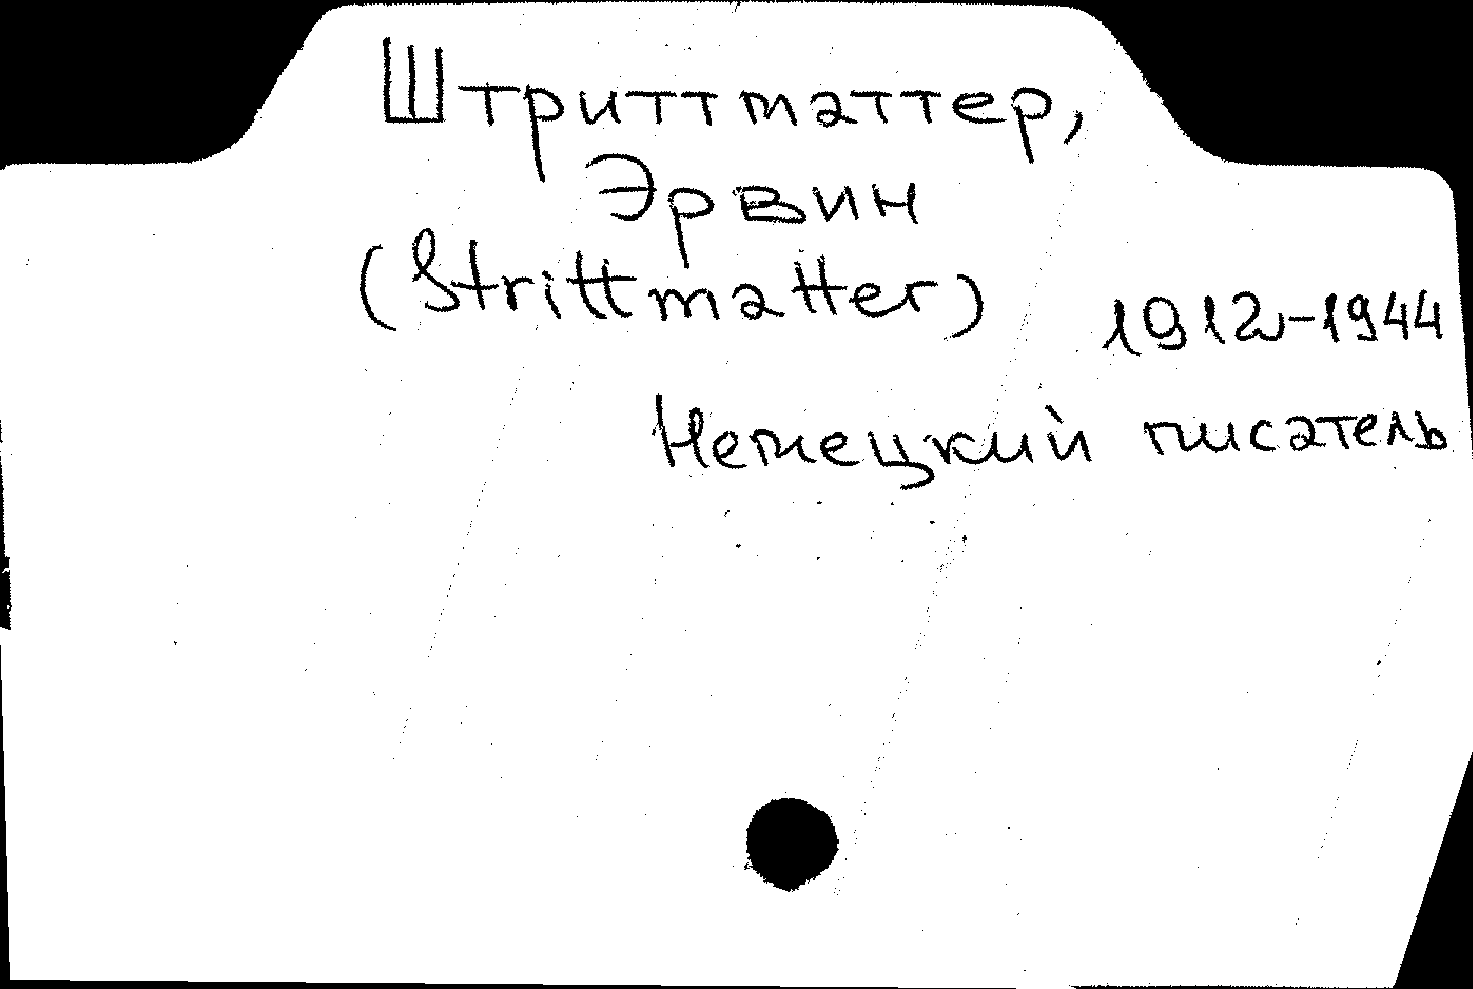 Штриттматтер,
Эрвин
(Strittmatter)
1912-1944
Немецкий писатель